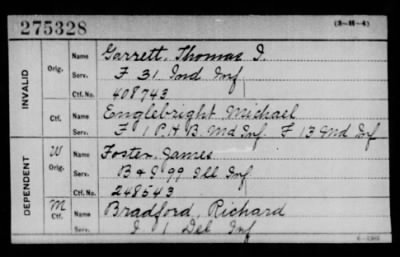 275328 (3-H-4)
INVALID
Orig. Name Garrett, Thomas I.
Serv. F 31 Ind Inf
Ctf. No. 408743
Ctf. Name Englebright Michael
Serv. F 1 P.H.B. Md Inf F 13 Md Inf
DEPENDENT
W Orig. Name Foster, James
Serv. B & I 99 Ill Inf
Ctf. No. 248543
M Ctf. Name Bradford, Richard
Serv. I 1 Del Inf